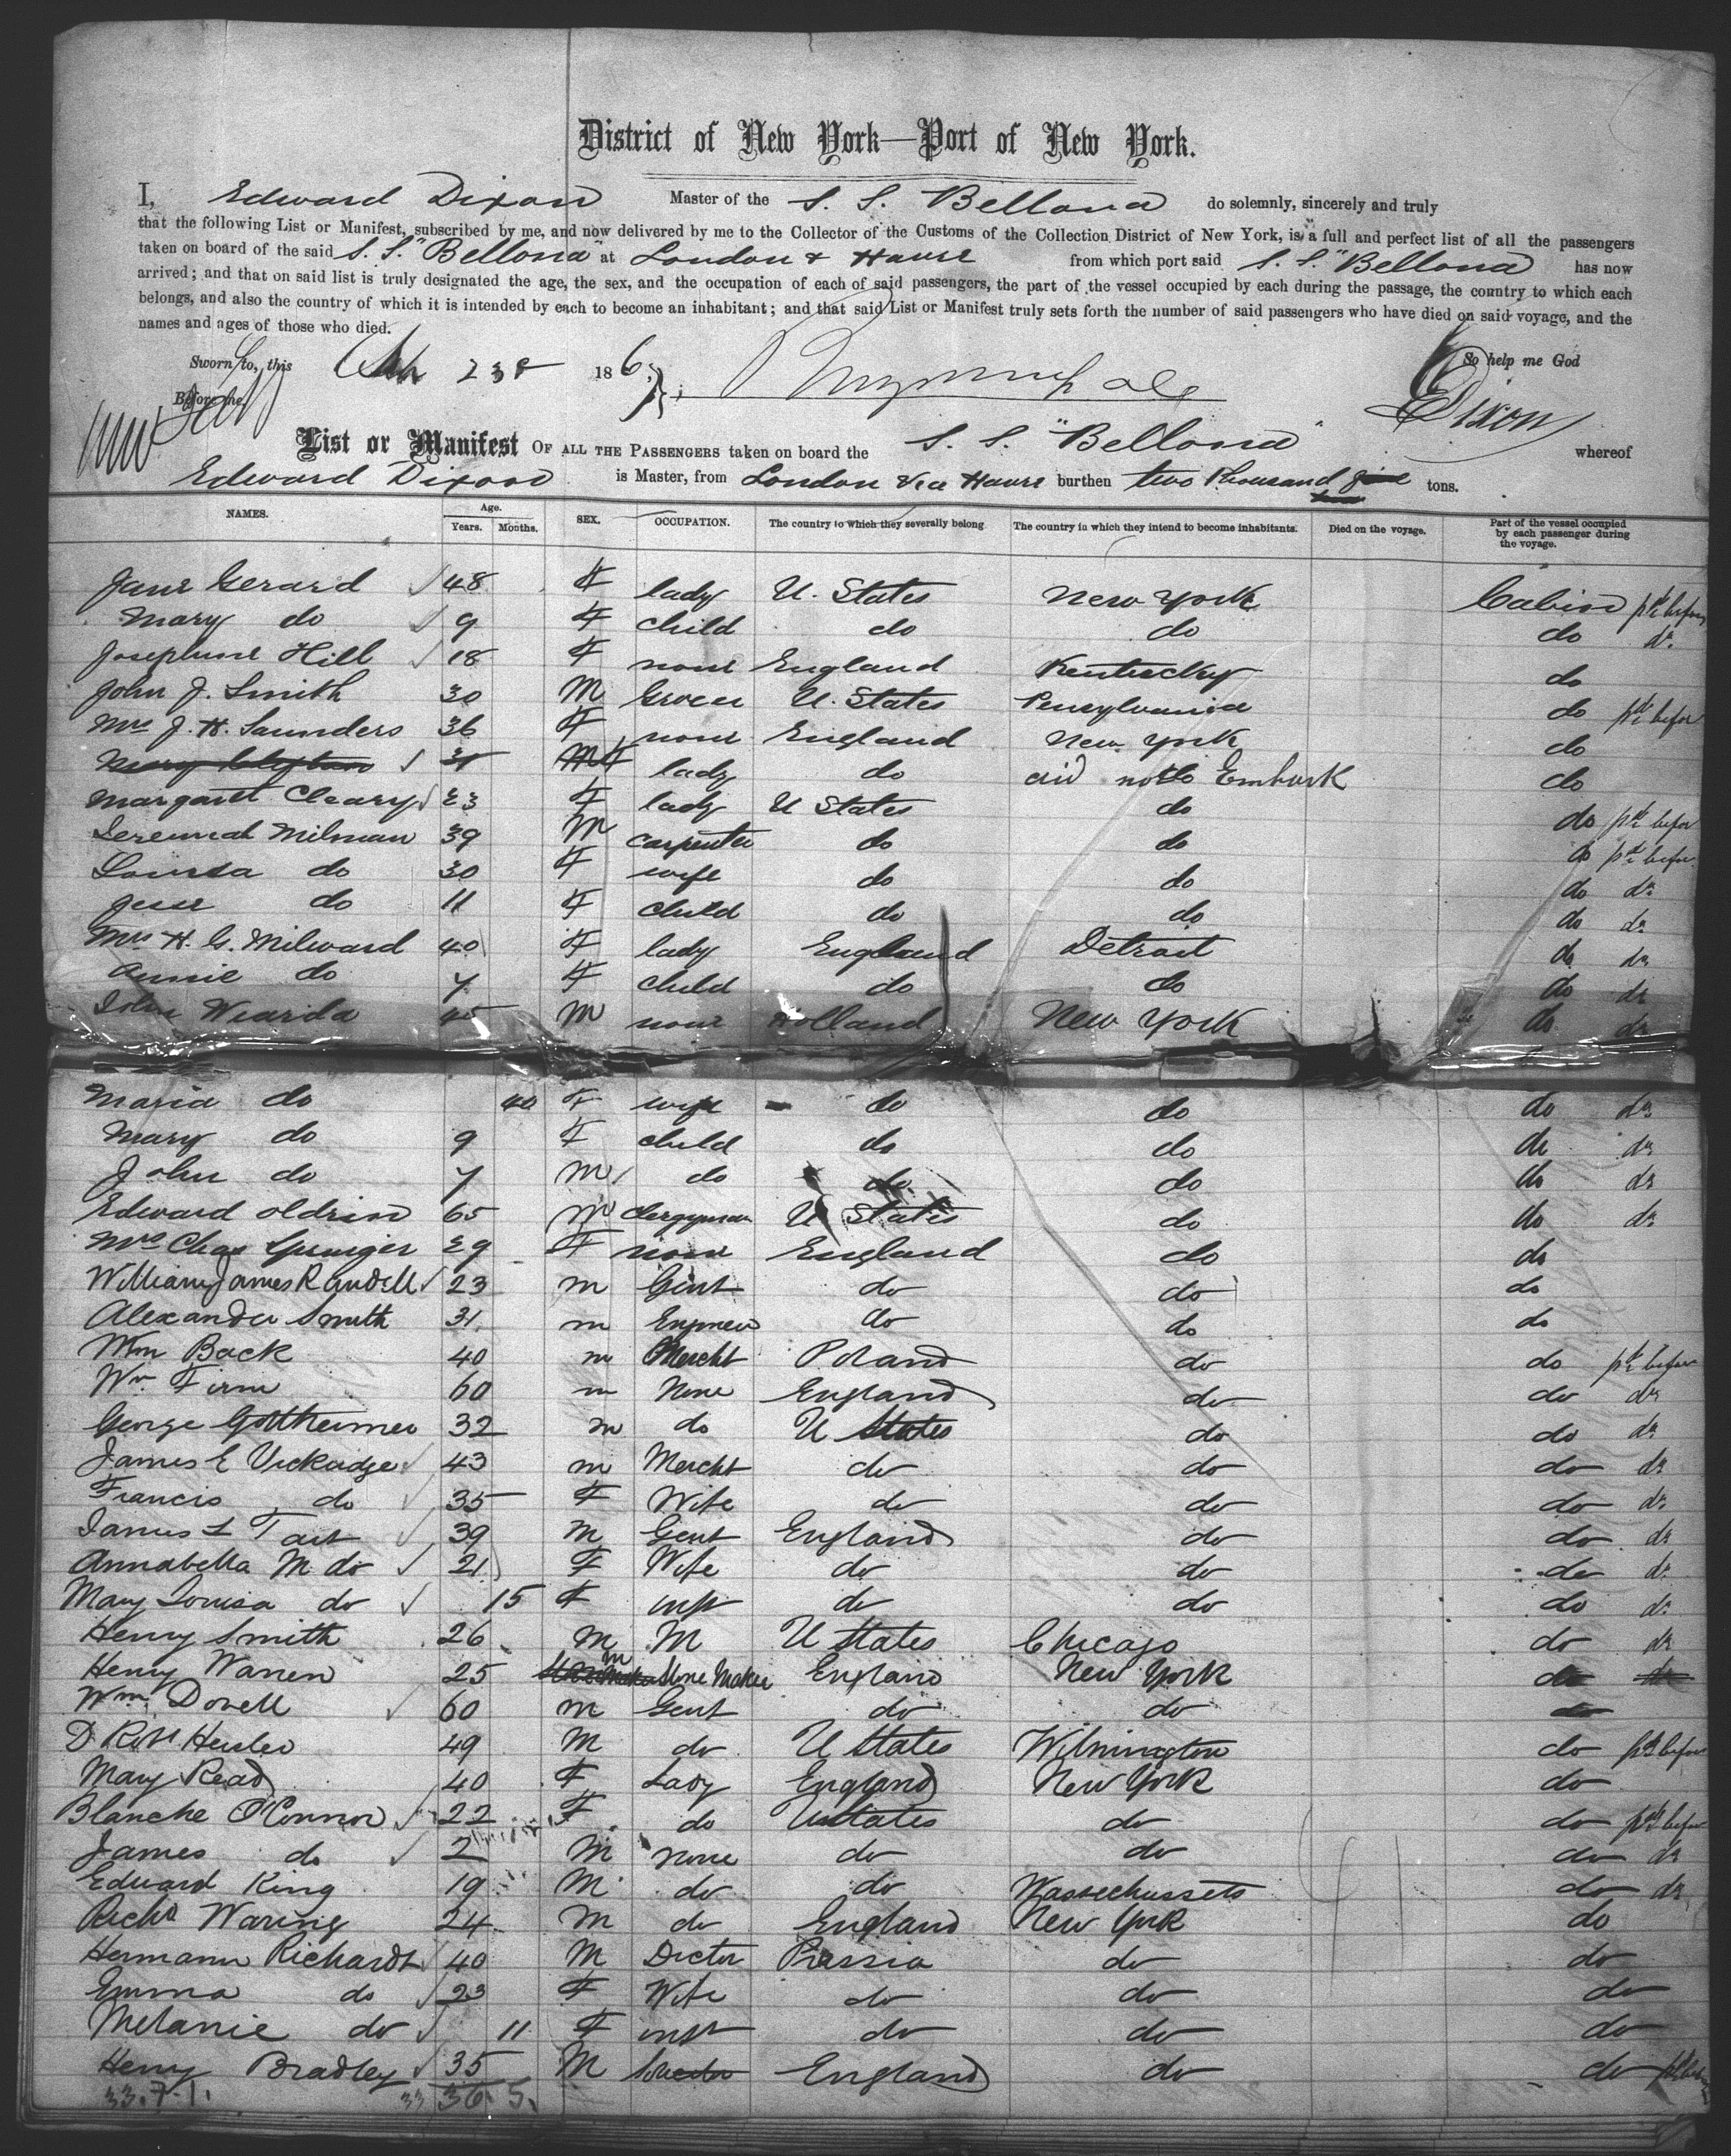 District of New York—Port of New York.
I, Edward Dixon Master of the S. S. Bellona do solemnly, sincerely and truly
that the following List or Manifest, subscribed by me, and now delivered by me to the Collector of the Customs of the Collection District of New York, is a full and perfect list of all the passengers
taken on board of the said S. S. "Bellona" at London & Havre from which port said S. S. "Bellona" has now
arrived; and that on said list is truly designated the age, the sex, and the occupation of each of said passengers, the part of the vessel occupied by each during the passage, the country to which each
belongs, and also the country of which it is intended by each to become an inhabitant; and that said List or Manifest truly sets forth the number of said passengers who have died on said voyage, and the
names and ages of those who died.
Sworn to, this 23 186 So help me God
Before me, E Dixon
List or Manifest OF ALL THE PASSENGERS taken on board the S. S. "Bellona" whereof
Edward Dixon is Master, from London Via Havre burthen two thousand tons.
NAMES. Age. Years. Months. SEX. OCCUPATION. The country to which they severally belong. The country in which they intend to become inhabitants. Died on the voyage. Part of the vessel occupied by each passenger during the voyage.
Jane Gerard 48 F lady U. States New York Cabin pd before
Mary do 9 F child do do do do
Josephine Hill 18 F none England Kentucky do
John J. Smith 30 M Grocer U. States Pensylvania do pd before
Mrs J. H. Saunders 36 F none England New York do
31 F lady do did not Embark do
Margaret Cleary 23 F lady U States do do pd before
Jeremiah Milman 39 M carpenter do do do pd before
Louisa do 30 F wife do do do do
do 11 F child do do do do
Mrs H. G. Milward 40 F lady England Detroit do do
Annie do 7 F child do do do do
John Wiarda 45 M none Holland New York do do
Maria do 40 F wife do do do do
Mary do 9 F child do do do do
John do 7 M do do do do do
Edward Oldrin 65 M Clergyman U States do do do
Mrs Chas Springer 29 F none England do do
William James Randell 23 m Gent do do do
Alexander Smith 31 m Engineer do do do
Wm Back 40 m Mercht Poland do do pd before
Wm Firm 60 m None England do do do
George Gottheimer 32 m do U States do do do
James E Vickadge 43 m Mercht do do do do
Francis do 35 F Wife do do do do
James L Tait 39 m Gent England do do do
Annabella M do 21 F Wife do do do do
Mary Louisa do 15 F inft do do do do
Henry Smith 26 M M U States Chicago do do
Henry Warren 25 m Stone Maker England New York do do
Wm Dovell 60 m Gent do do do
49 M do U States Wilmington do pd before
Mary Read 40 F Lady England New York do
Blanche O'Connor 22 F do U States do do pd before
James do 2 M none do do do do
Edward King 19 M do do Massechussets do do
Richd Waring 24 M do England New York do
Hermann Richardt 40 M Doctor Prussia do do
Emma do 23 F Wife do do do
Melanie do 11 F inft do do do
Henry Bradley 35 M England do do
33.7.1. 33 36 5.